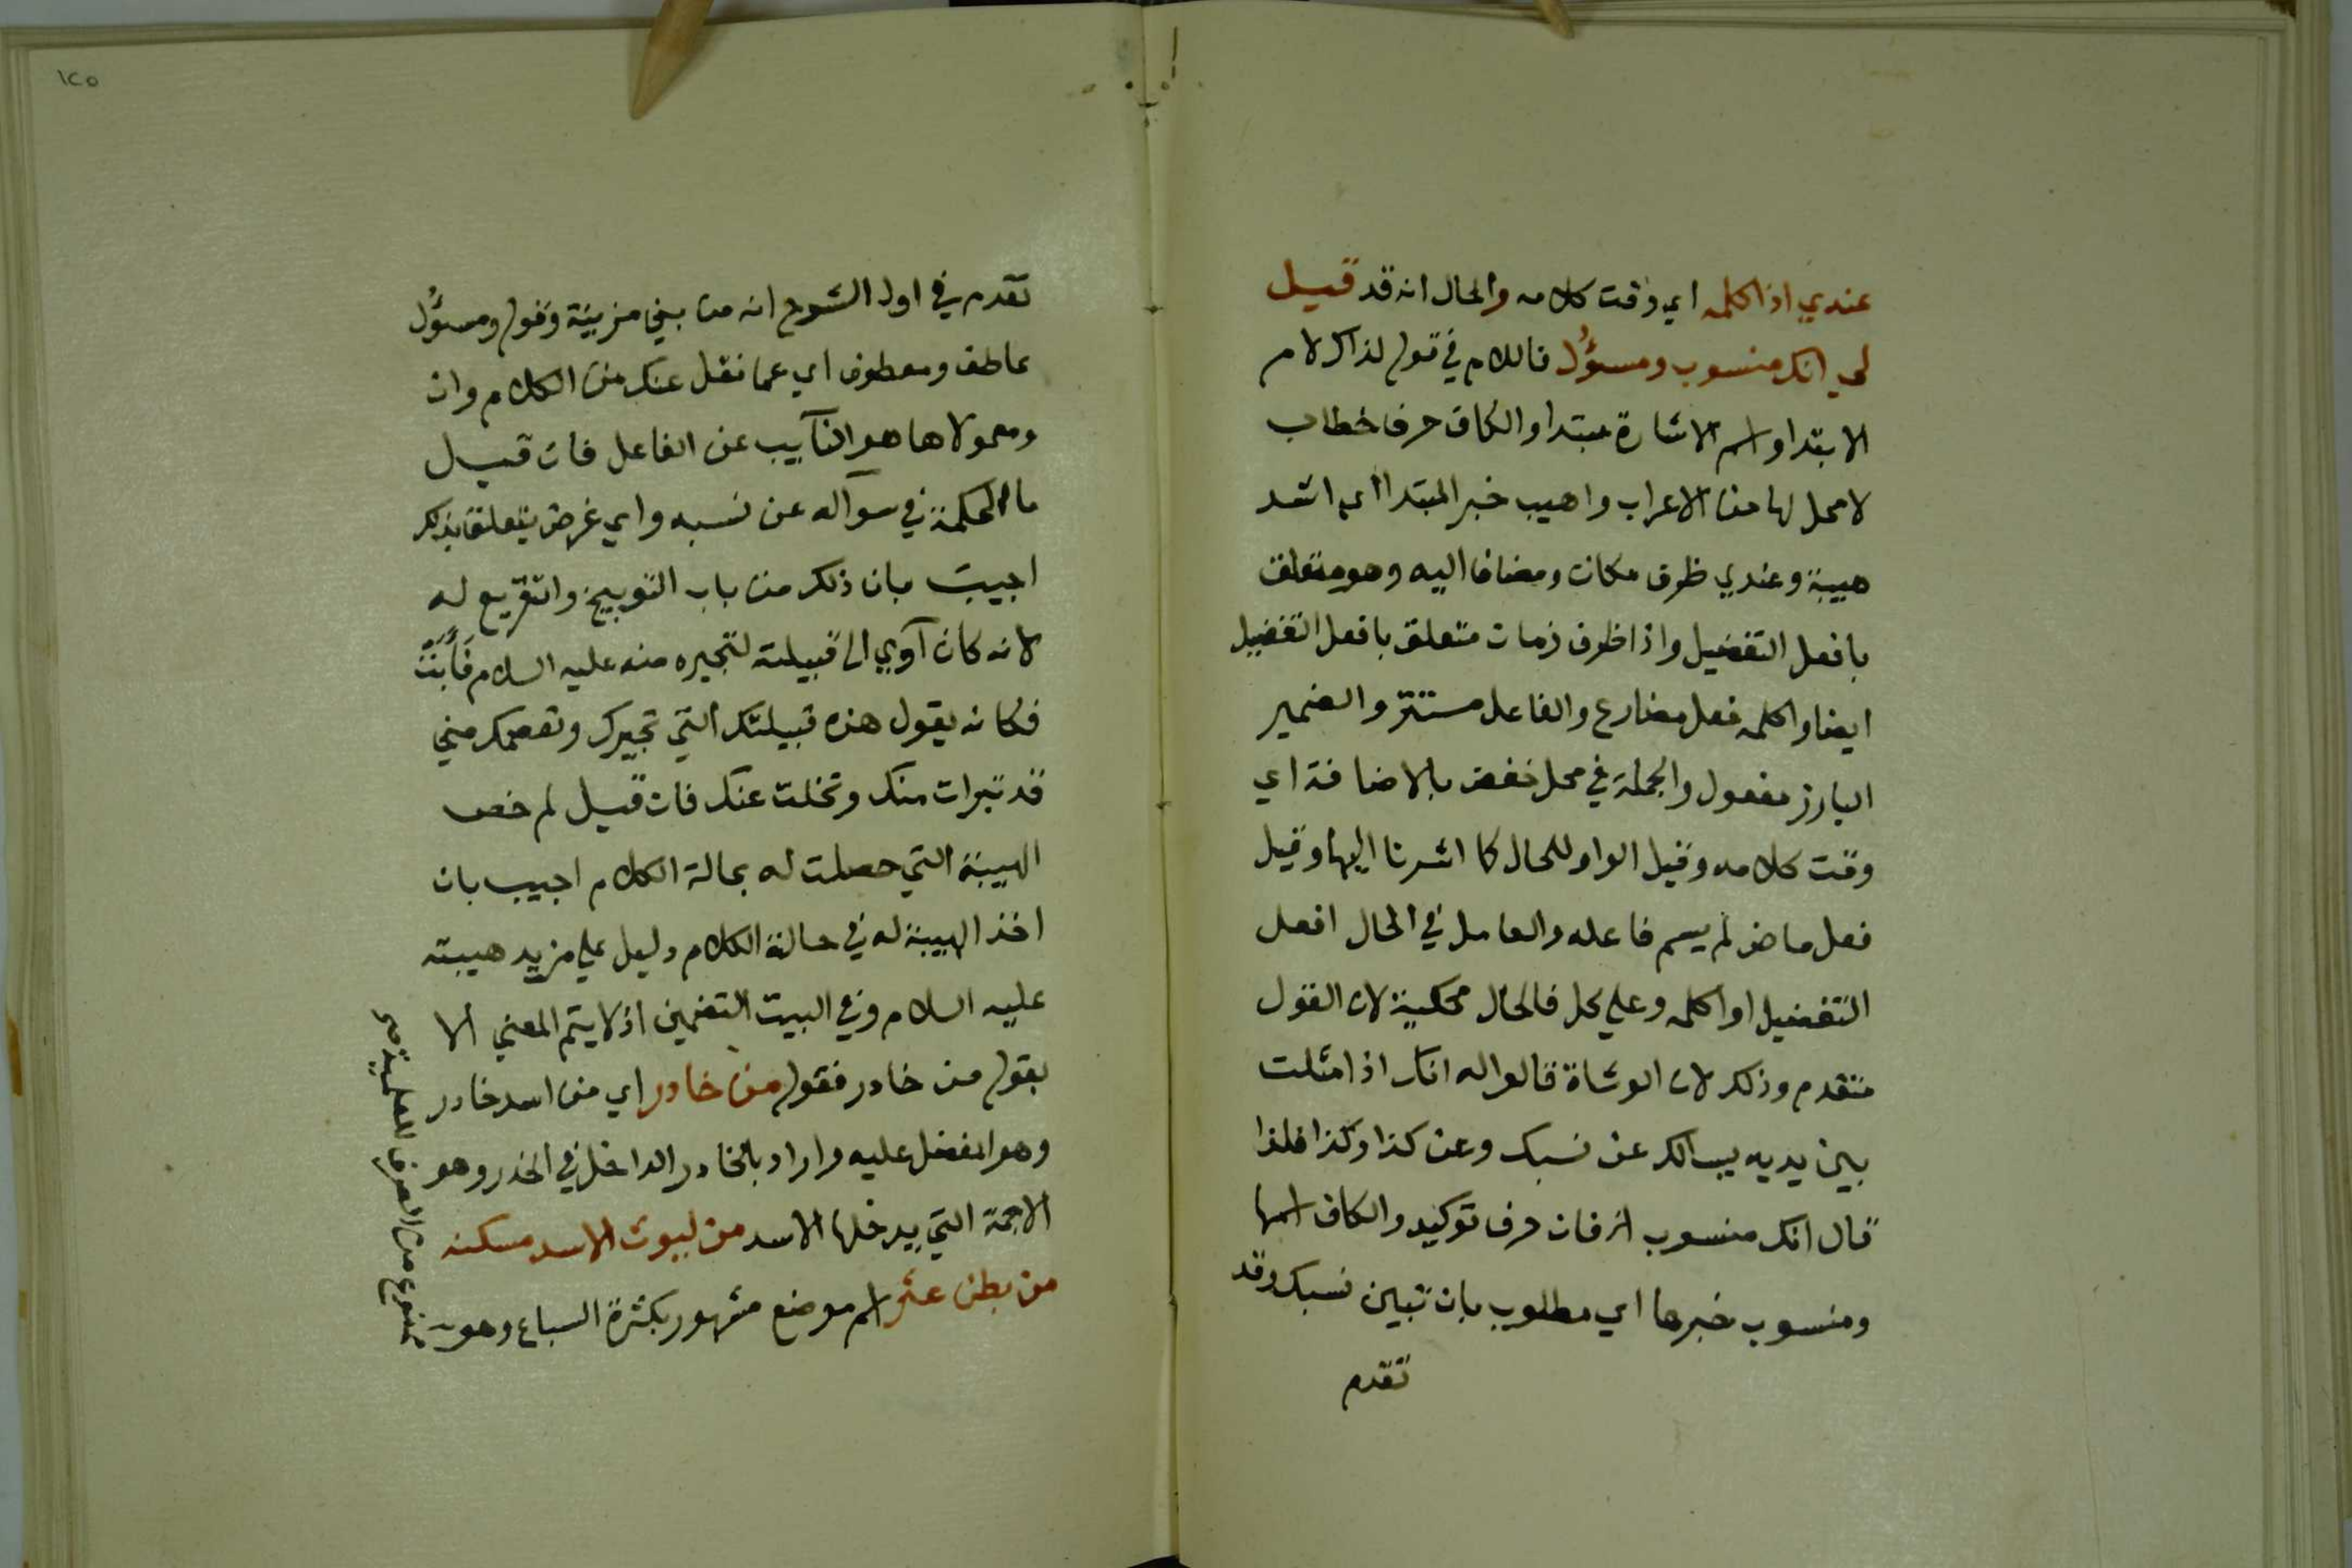 عندي اذ اكلمه اي وقت كلامه والحال انه قد قيل
لي انك منسوب ومسؤل فاللام في قوله لذاك لام
الابتدا واسم الاشارة مبتدا والكاف حرف خطاب
لا محل لها من الاعراب واهيب خبر المبتدا اي اشد
هيبة وعندي ظرف مكان ومضاف اليه وهو متعلق
بافعل التفضيل واذا ظرف زمان متعلق بافعل التفضيل
ايضا واكلمه فعل مضارع والفاعل مستتر والضمير
البارز مفعول والجملة في محل خفض بالاضافة اي
وقت كلامه وقيل الواو للحال كما اشرنا اليها وقيل
فعل ماض لم يسم فاعله والعامل في الحال افعل
التفضيل او اكلمه وعلي كل فالحال محكية لان القول
متقدم وذلك لان الوشاة قالوا له انك اذا مثلت
بين يديه يسالك عن نسبك وعن كذا وكذا فلذا
قال انك منسوب الخ فان حرف توكيد والكاف اسمها
ومنسوب خبرها اي مطلوب بان تبين نسبك وقد
تقدم
١٢٥
تقدم في اول الشرح انه من بني مزينة وقوله ومسؤل
عاطف ومعطوف اي عما نقل عنك من الكلام وان
ومعمولاها هو النآيب عن الفاعل فان قيل
ما الحكمة في سوآله عن نسبه واي غرض يتعلق بذلك
اجيب بان ذلك من باب التوبيخ والتقريع له
لانه كان آوي الى قبيلته لتجيره منه عليه السلام فَأَبَتْ
فكانه يقول هذه قبيلتك التي تجيرك وتعصمك مني
قد تبرات منك وتخلت عنك فان قيل لم خص
الهيبة التي حصلت له بحالة الكلام اجيب بان
اخذ الهيبة له في حالة الكلام دليل علي مزيد هيبته
عليه السلام وفي البيت التضمين اذ لا يتم المعني الا
بقوله من خادر فقوله من خادر اي من اسد خادر
وهو المفضل عليه واراد بالخادر الداخل في الخدر وهو
الاجمة التي يدخلها الاسد من ليوث الاسد مسكنه
من بطن عثر اسم موضع مشهور بكثرة السباع وهو
ممنوع من الصرف للعلمية